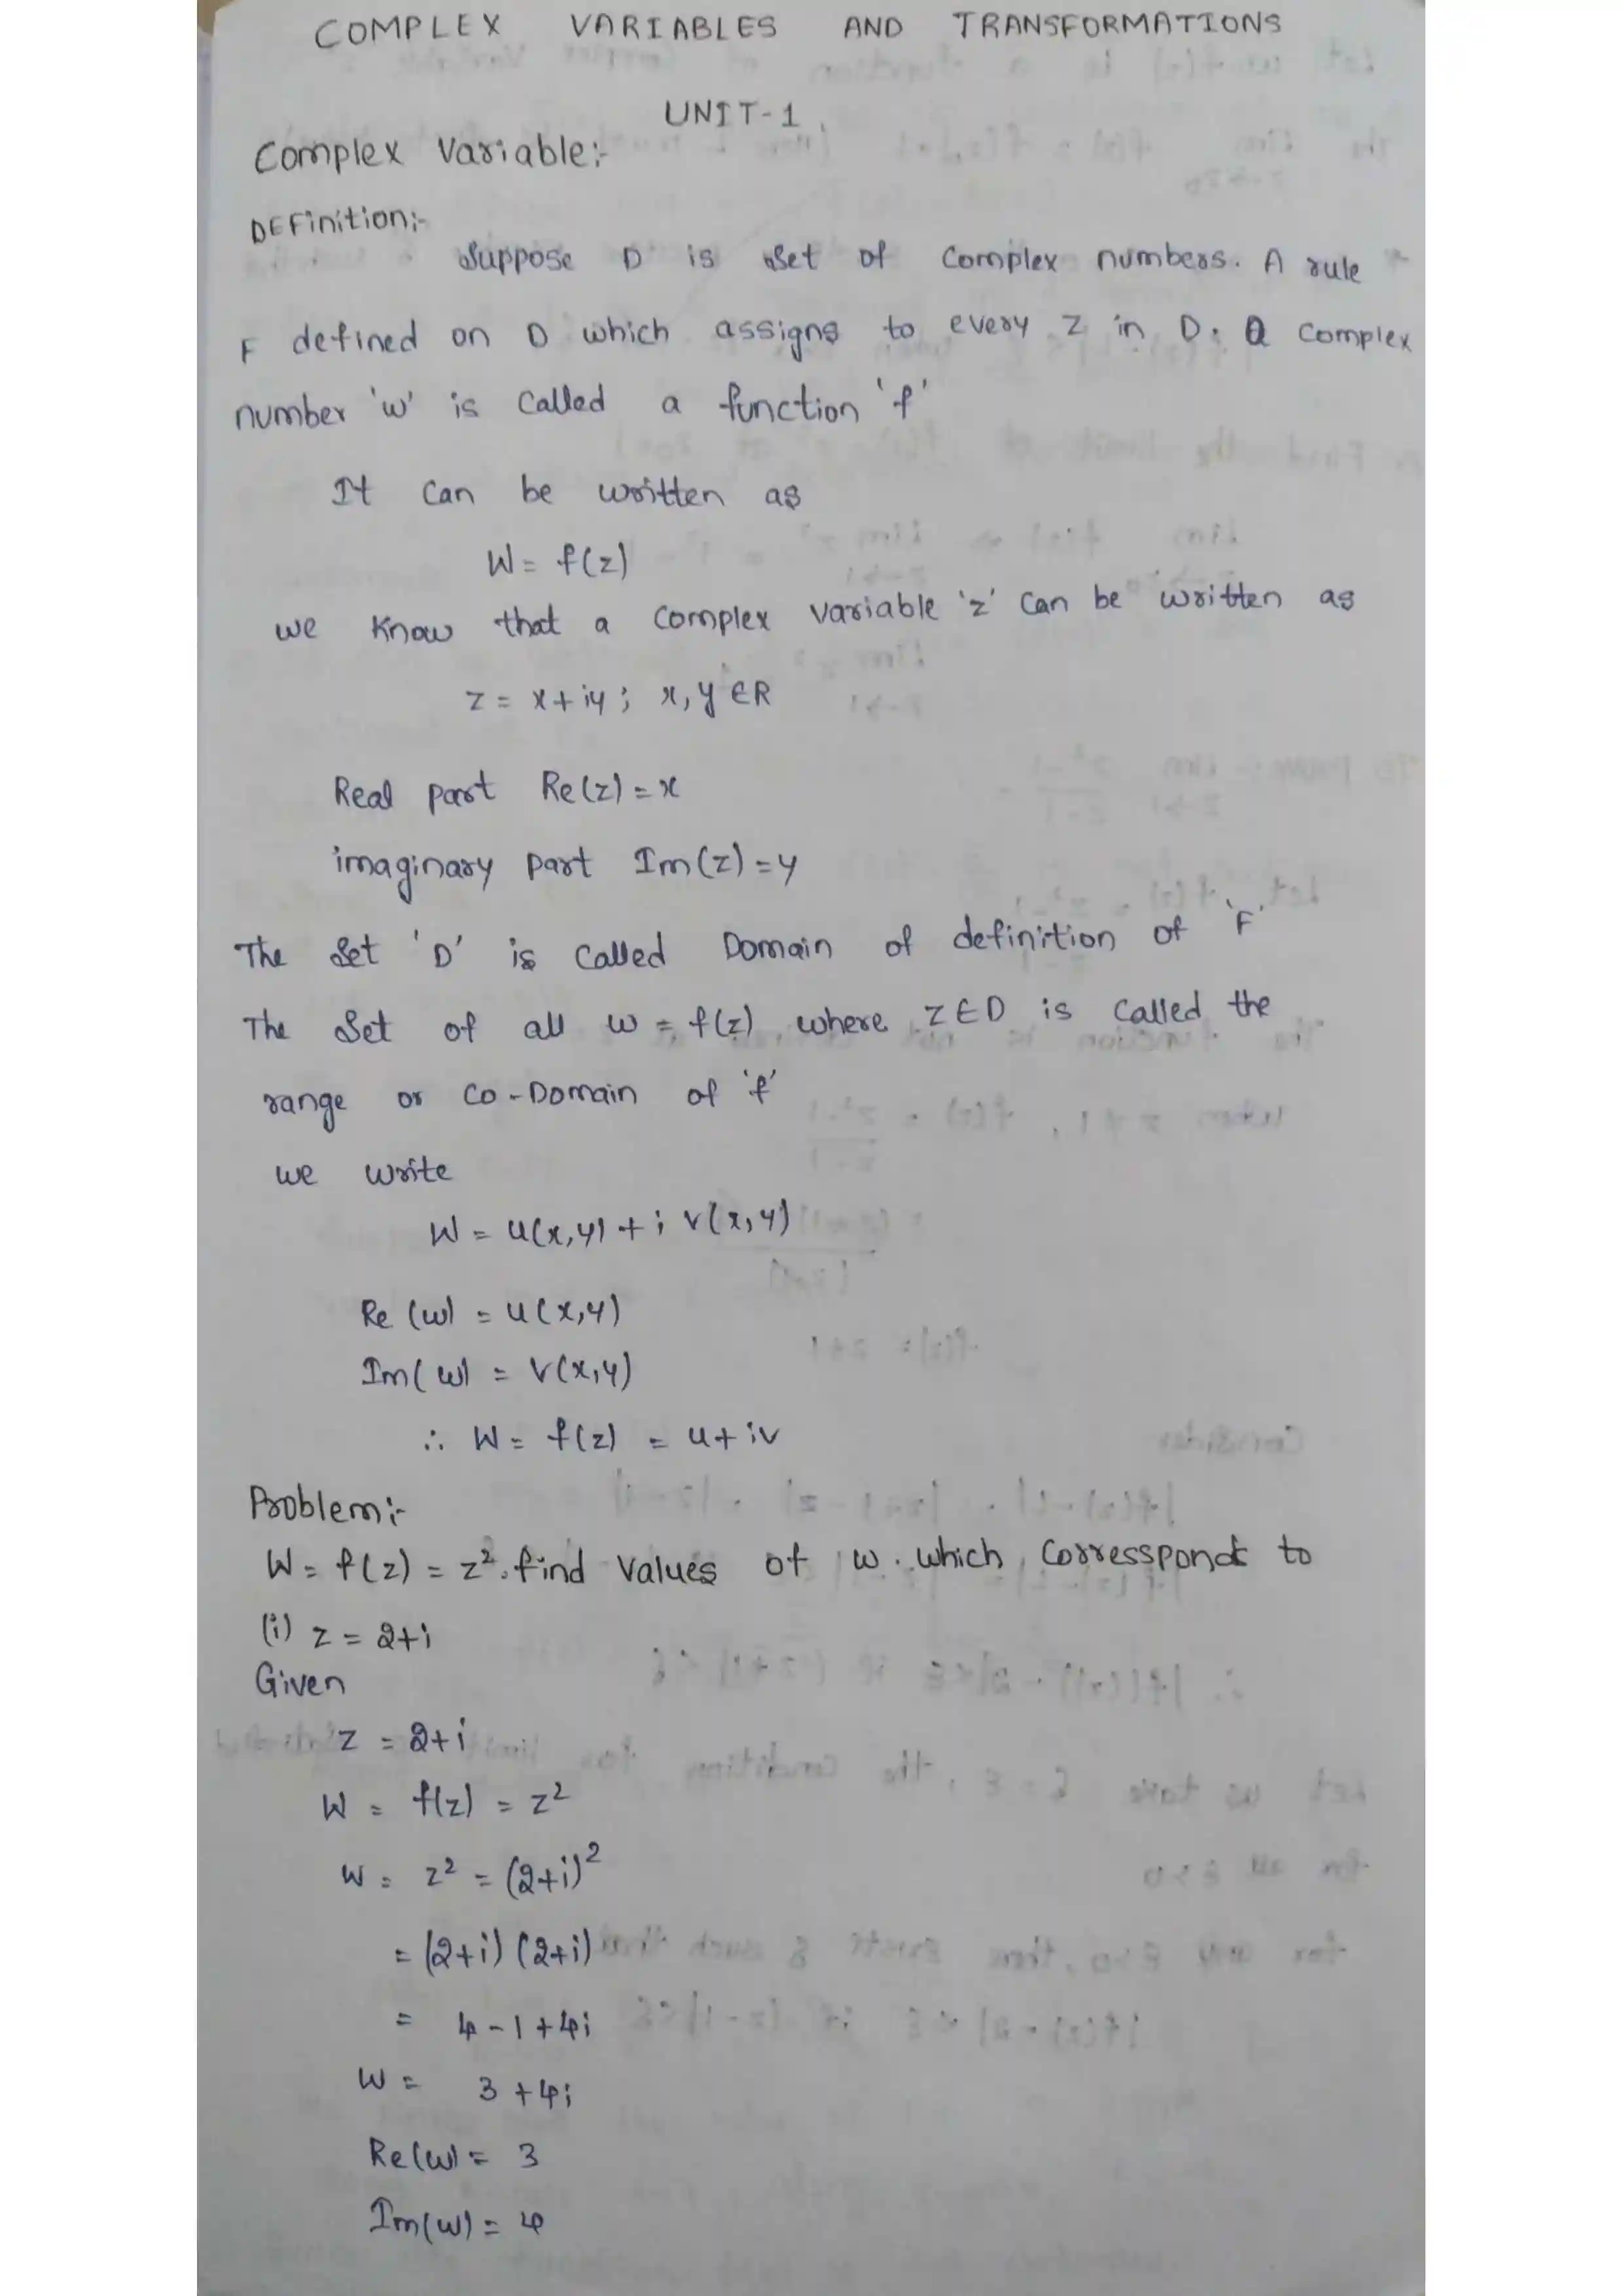 COMPLEX VARIABLES AND TRANSFORMATIONS
UNIT-1
Complex Variable:-
DEFinition:-
Suppose D is Set of Complex numbers. A rule
F defined on D which assigns to every Z in D. a Complex
number 'w' is Called a function 'f'
It Can be written as
W = f(z)
we Know that a Complex Variable 'z' Can be written as
z = x + iy ; x, y ∈ R
Real part Re(z) = x
imaginary part Im(z) = y
The Set 'D' is Called Domain of definition of 'F'
The Set of all w = f(z) where Z ∈ D is Called the
range or Co-Domain of 'f'
we write
W = u(x,y) + i v(x,y)
Re (w) = u(x,y)
Im(w) = v(x,y)
∴ W = f(z) = u + iv
Problem:-
W = f(z) = z². find Values of w. which Corresspondt to
(i) z = 2+i
Given
z = 2+i
W = f(z) = z²
W = z² = (2+i)²
= (2+i) (2+i)
= 4-1+4i
W = 3+4i
Re(w) = 3
Im(w) = 4